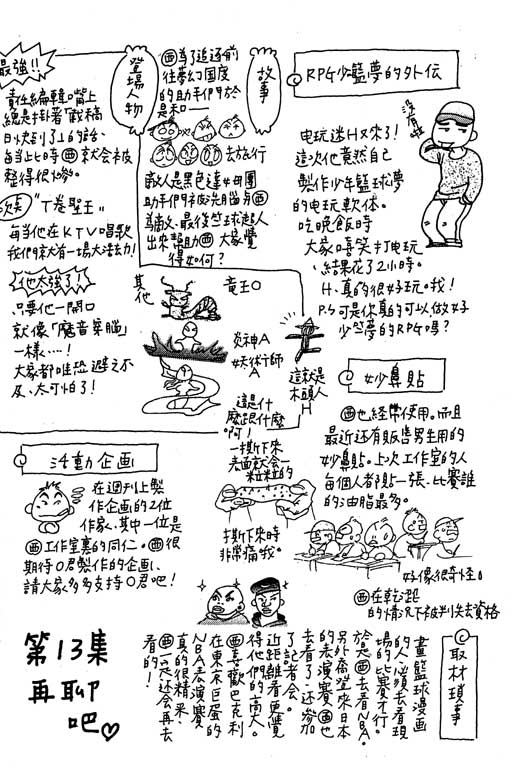 RPG少籃夢的外伝
电玩迷H又來了!
這次他竟然自己
製作少年籃球夢
的电玩軟体。
吃晚飯時
大家嘻笑打电玩
、結果花了2小時。
H、真的很好玩。哦!
P.S可是你真的可以做好
少籃夢的RPG嗎?
沒有啦
故事
㊄為了追逐前
往夢幻国度
的助手們於
是和—
去旅行
敵人是黑色達
助手們被洗腦与㊄
為敵、最後竺球超人
出來幫助㊄大家覺
得如何?
登場人物
其他
竜王O
炎神A
妖術師
A
這就是
木頭人
H
最強!!
責任編輯韓口嘴上
總是掛著"截稿
日快到了"的話、
每当此時㊄就会被
整得很慘。
"T卷聖王"
每当他在KTV唱歌
我們就大有一場大法力!
他太強了!
只要他一開口
就像「魔音穿腦」
一樣…!
大家都唯恐避之不
及、太可怕了!
妙鼻貼
㊄也経常使用。而且
最近还有販售男生用的
妙鼻貼。上次工作室的人
每個人都貼一張、比賽誰
的油脂最多。
這是什
麼跟什麼
啊!
一撕下來
表面就会一
粒粒的
撕下來時
非常痛哦。
好像很奇怪。
㊄在乾燥
的情況下被判失去資格
活動企画
在週刊上製
作企画的2位
作家、其中一位是
㊄工作室裏的同仁。㊄很
期待O君製作的企画、
請大家多多支持O君吧!
取材瑣事
畫籃球漫画
的人必須去看現
場的比賽才行。
於是㊄去看NBA。
另外喬登來日本
的表演賽㊄也
去看了、还參加
了記者会。
近距離看更覺
得他們的高大。
㊄喜歡巴克利
在東京巨蛋的
NBA表演賽
真的很精采
㊄一定还会再去
看的!
第13集
再聊
吧♡